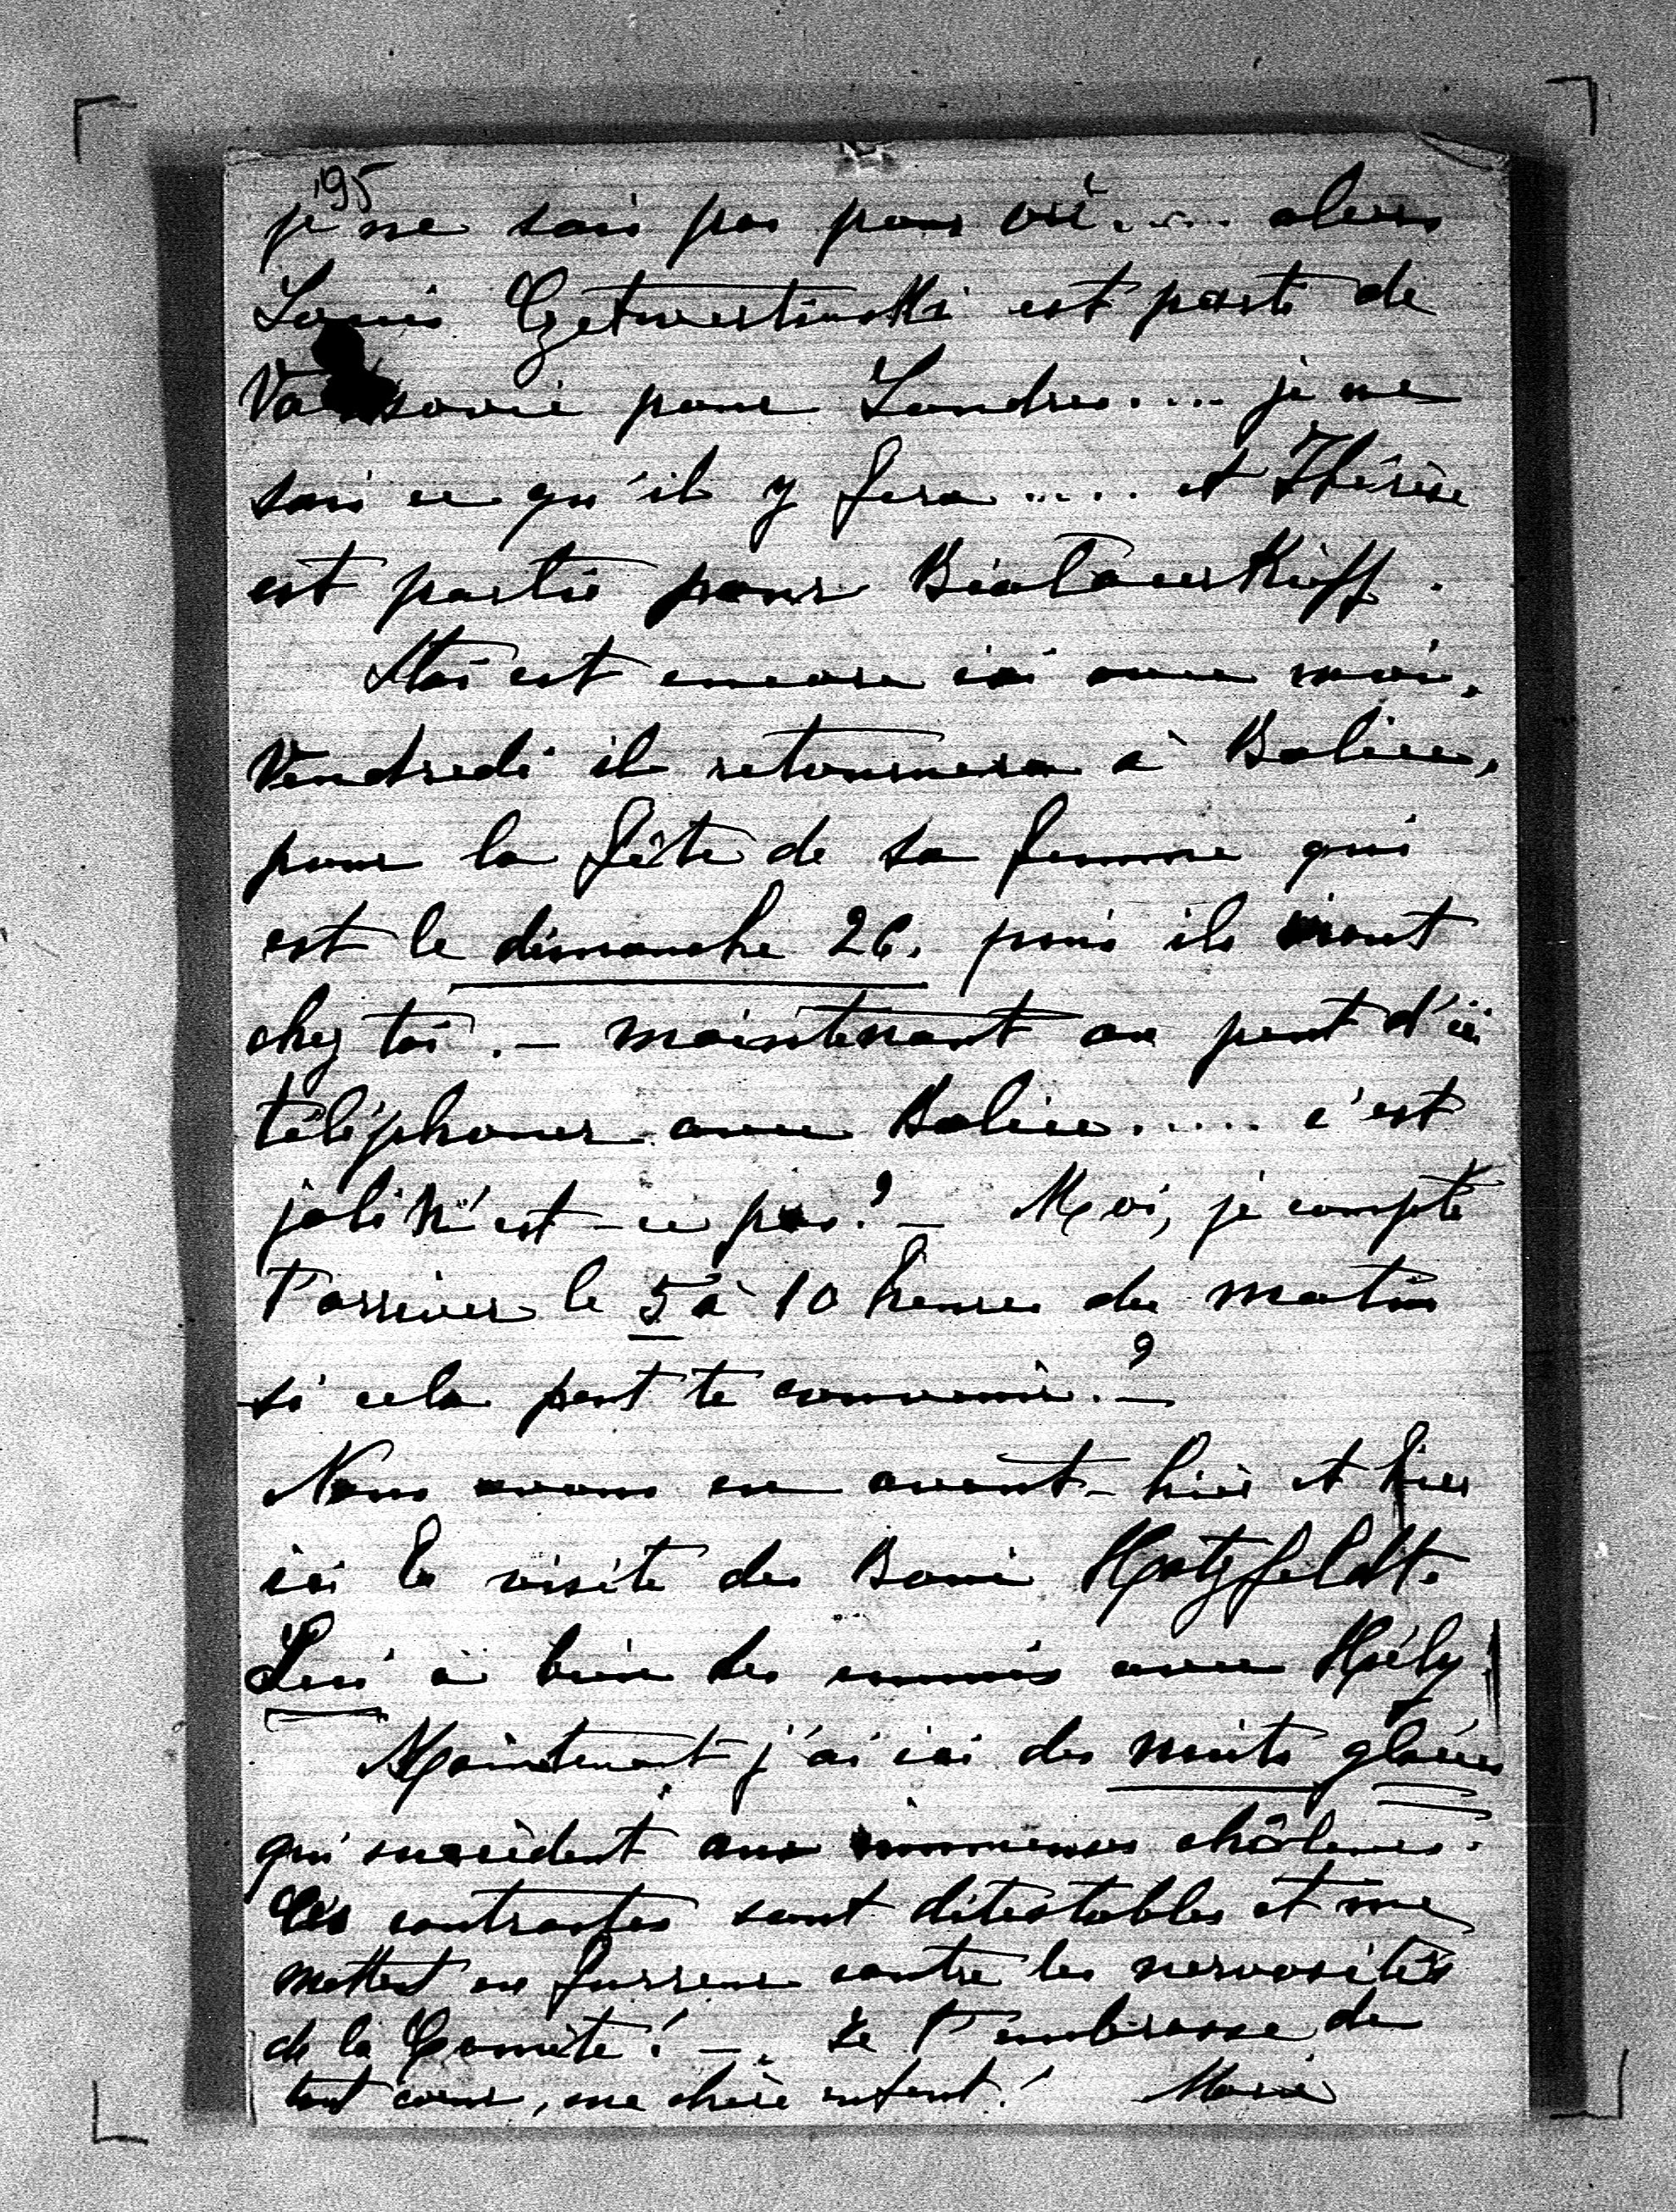 195
je ne sais pas pour où..... alors
Louis Czetwertinski est parti de
Varsovie pour Londres.... je ne
sais ce qu'il y fera..... et Thérèse
est partie pour BialacerKieff.
Stas est encore ici avec moi,
Vendredi il retournera à Balice,
pour la fête de sa femme qui
est le dimanche 26. puis ils iront
chez toi. – maintenant on peut d'ici
téléphoner avec Balice..... c'est
joli n'est-ce pas? – Moi, je compte
t'arriver le 5 à 10 heures du matin
si cela peut te convenir.? –
Nous avons eu avant-hier et hier
ici la visite des Boni Hatzfeldt.
Lui a bien des ennuis avec Hély!
Maintenant j'ai ici des nuits glacées
qui succèdent aux immenses châleurs.
Ces contrastes sont détestables et me
mettent en furreur contre les nervosités
de la Comète! –. Je t'embrasse de
tout cœur, ma chère enfant! Marie